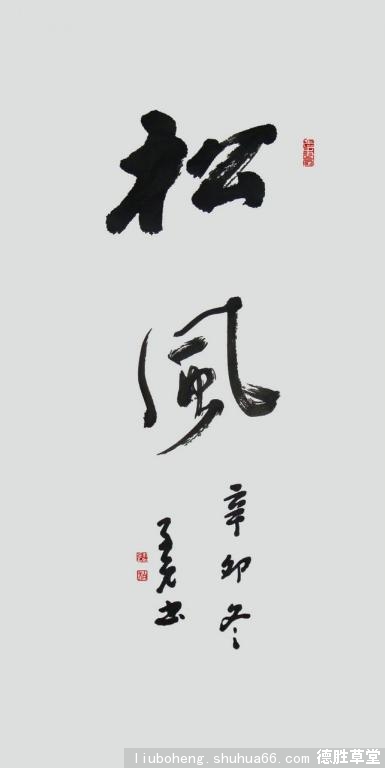 松風
辛卯冬
子文書
liuboheng.shuhua66.com 德胜草堂